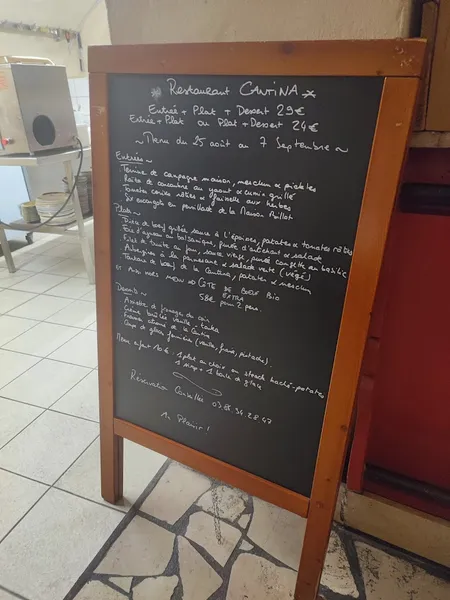 Restaurant CANTINA
Entrée + Plat + Dessert 29€
Entrée + Plat ou Plat + Dessert 24€
~ Menu du 25 août au 7 Septembre ~
Entrées ~
Terrine de campagne maison, mesclun &
de concombre au yaourt & cumin grillé
Tomate rôties & faisselle aux herbes
Six escargots en de la Maison
Plats ~
de boeuf grillée sauce à l'époisses, patates & tomates rôties
Foie d'agneau au balsamique, purée d'artichaut & salade
Filet de truite au four, sauce vierge, purée au basilic
Aubergine à la parmesane & salade verte (végé)
Tartare de boeuf de la Cantina, patates & mesclun
ET AUX MENU CÔTE DE BOEUF BIO
EXTRA
58€ pour 2 pers.
Desserts ~
Assiette de fromage du coin
Crème brûlée vanille - tonka
de la Cantina
Coupe de glace fermière (vanille, fraise, pistache).
Menu enfant 10€. 1 plat au choix ou steack haché-patates
1 sirop + 1 boule de glace
Réservation Conseillée 03.85.34.28.47
Au Plaisir !